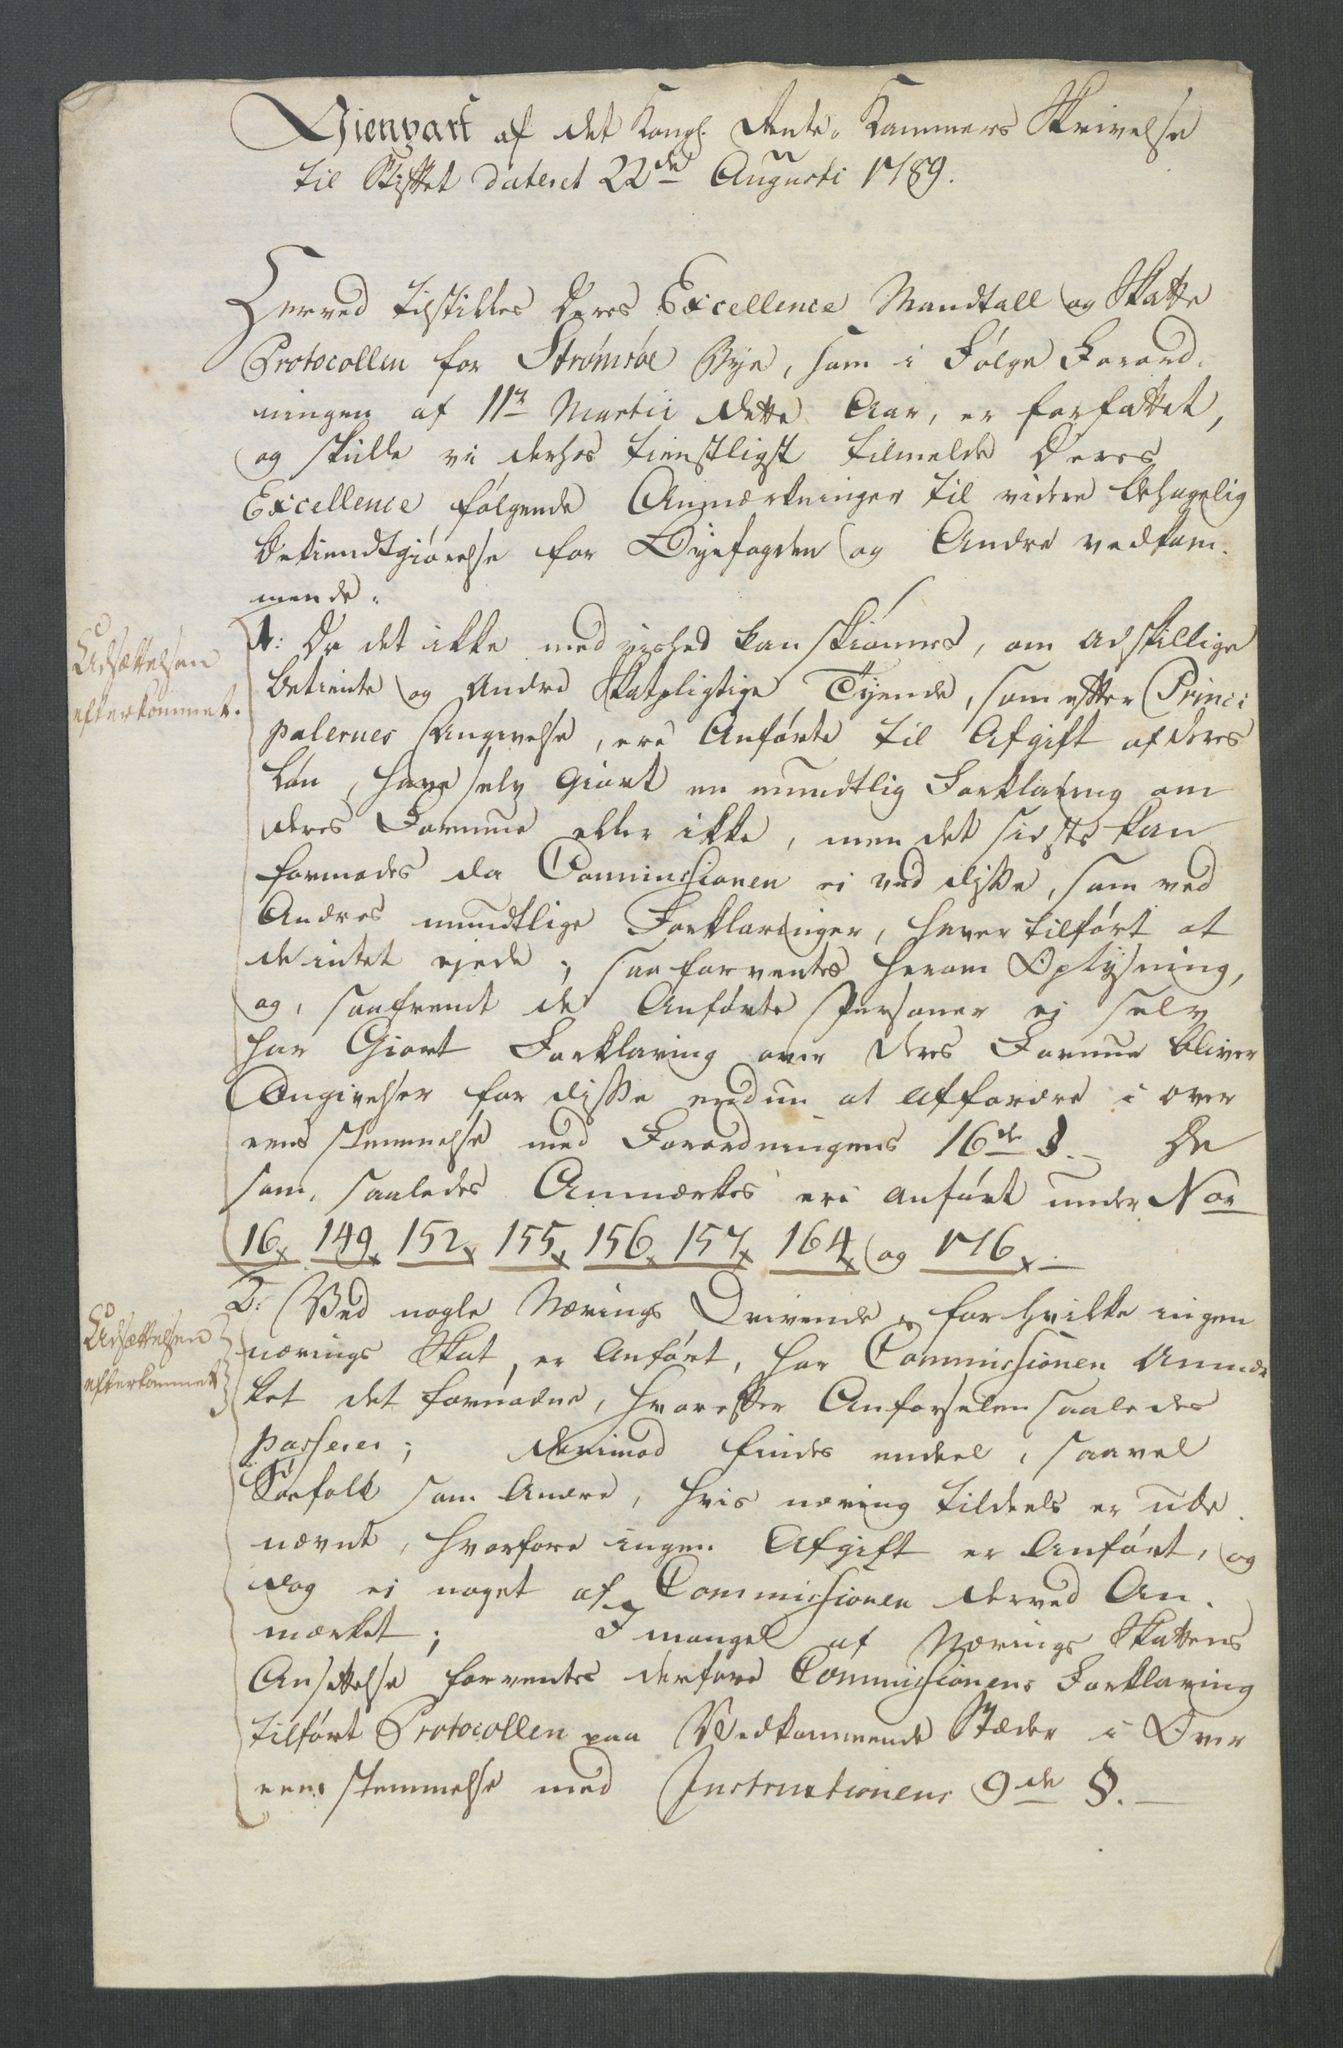 Gienpart af det Kongl. Rente-Kammers Skrivelse
til Stiftet dateret 22de Augusti 1789.
Herved tilstilles Deres Excellence Mandtall og Skatte
Protocollen for Strømsøe Bye, som i Følge Forord-
ningen af 11te Martii dette Aar, er forfattet,
og skulle vi derhos tienstligst tilmelde Deres
Excellence følgende Anmærkninger til videre behagelig
Bekiendtgiørelse for Byefogden og Andre vedkom-
mende.
Udsættelsen
efterkommet.
1: Da det ikke med vished kan skiønnes, om adskillige
betiente og Andre Skatpligtige Tyende, som efter Princi
palernes Angivelse, ere Anførte til Afgift af deres
Løn, have selv Giort en mundtlig Forklaring om
deres Formue eller ikke, men det sidste kan
formodes da Commissionen ei ved disse, som ved
Andres mundtlige Forklaringer, haver tilført at
de intet ejede; saa forventes herom Oplysning,
og, saafremt de Anførte Personer ej selv
har Giort Forklaring over deres Formue bliver
Angivelser for disse endnu at affordre i over
eens stemmelse med Forordningens 16de §. De
som saaledes Anmærkes ere anført under Nor
16 149 152 155 156 157 164 og 176
Udsættelsen
efterkommet
2: Ved nogle Nærings Drivende, for hvilke ingen
nærings Skat er Anført, har Commissionen Anmær
ket det fornødne, hvorefter Anførselen saaledes
passerer; derimod findes endeel, saavel
Søefolk som Andre, hvis næring tildeels er ube
nævnt, hvorfore ingen Afgift er Anført, og
dog ei noget af Commissionen derved An-
mærket; I mangel af Nærings Skattens
Ansettelse forventes derfore Commissionens Forklaring
tilført Protocollen paa Vedkommende Stæder i Over
eens stemmelse med Instructionens 9de §.